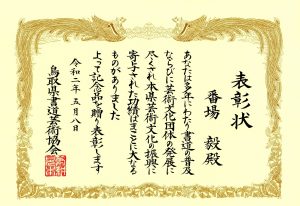 表彰状
番場　毅殿
あなたは多年にわたり書道の普及
ならびに芸術文化団体の発展に
尽くされ本県芸術文化の振興に
寄与された功績はまことに大なる
ものがありました
よって記念品を贈り表彰します
令和二年五月八日
鳥取県書道芸術協会